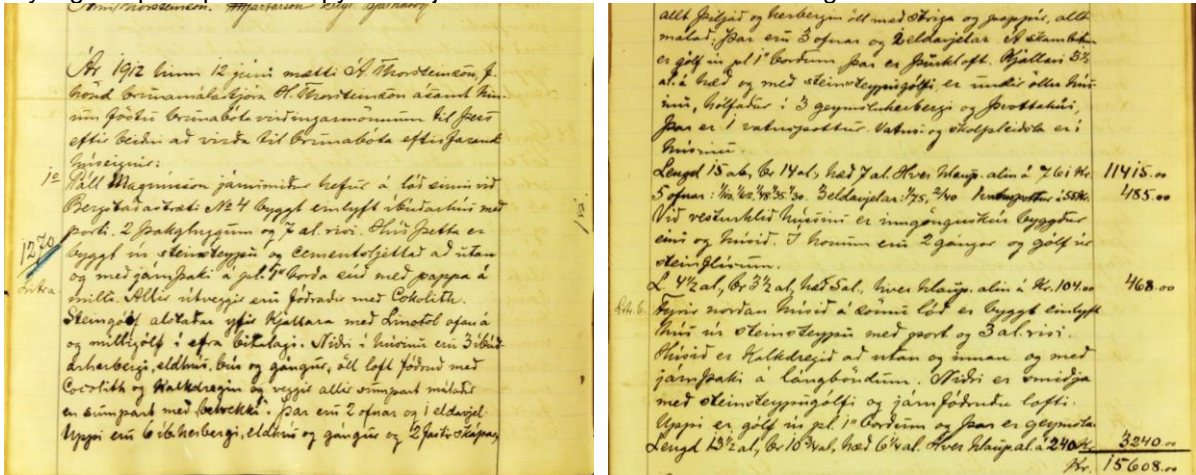 Ár 1912 hinn 12 júní mætti Á. Thorsteinson, f.
hönd brunamálastjóra H. Thorsteinson ásamt hin-
um föstu brunabóta virðingarmönnum til þess
eftir beiðni að virða til brunabóta eftirfarandi
húseignir:
1o Páll Magnússon járnsmiður hefur á lóð sinni við
Bergstaðastræti No 4 byggt einlyft íbúðarhús með
porti. 2 þakgluggum og 7 al. risi. Hús þetta er
1270 byggt úr steinsteypu og cementsljettað að utan
og með járnþaki á pl. 1" borða súð með pappa á
milli. Allir útveggir eru fóðraðir með Cokolith.
Steingólf alstaðar yfir Kjallara með Linotol ofaná
og milligólf í efra bitalagi. Niðri í húsinu eru 3 íbúð-
arherbergi, eldhús, búr og gangur, öll loft fóðruð með
Cocolith og Kalkdregin og veggir allir sumpart málaðir
en sumpart með betrekki. Þar eru 2 ofnar og 1 eldavjel.
Uppi eru 6 íb. herbergi, eldhús og gángur og 2 fastir skápar,
allt þiljað og herbergin öll með striga og pappír, allt
málað; þar eru 3 ofnar og 2 eldavjelar. Á skambitum
er gólf úr pl. 1" borðum þar er þurkloft. Kjallari 3½
al. á hæð og með steinsteypugólfi er undir öllu hús
inu, hólfaður í 3 geymsluherbergi og þvottahús,
þar er 1 vatnspottur. Vatns og skolpleiðsla er í
húsinu.
Lengd 15 al, br 14 al, hæð 7 al. Hver klaup. alin á 761 Kr. 11415.00
5 ofnar: 3 eldavjelar: 1/75, 2/40 1 vatnspottur á 485.00
Við vesturhlið hússins er inngönguskúr byggður
eins og húsið. Í honum eru 2 gángar og gólf úr
steinflísum.
L. 4½ al, br 3½ al, hæð 5 al. hver klaup. alin á Kr. 104.00 468.00
Fyrir norðan húsið á sömu lóð er byggt einlyft
hús úr steinsteypu með port og 3 al. risi.
Húsið er Kalkdregið að utan og innan og með
járnþaki á lángböndum. Niðri er smiðja
með steinsteypugólfi og járnfóðruðu lofti.
Uppi er gólf úr pl. 1" borðum og þar er geymsla
Lengd 13½ al, br 10¾ al, hæð 6¼ al. Hver klaup. al á 240 Kr. 3240.00
Kr. 15608.00